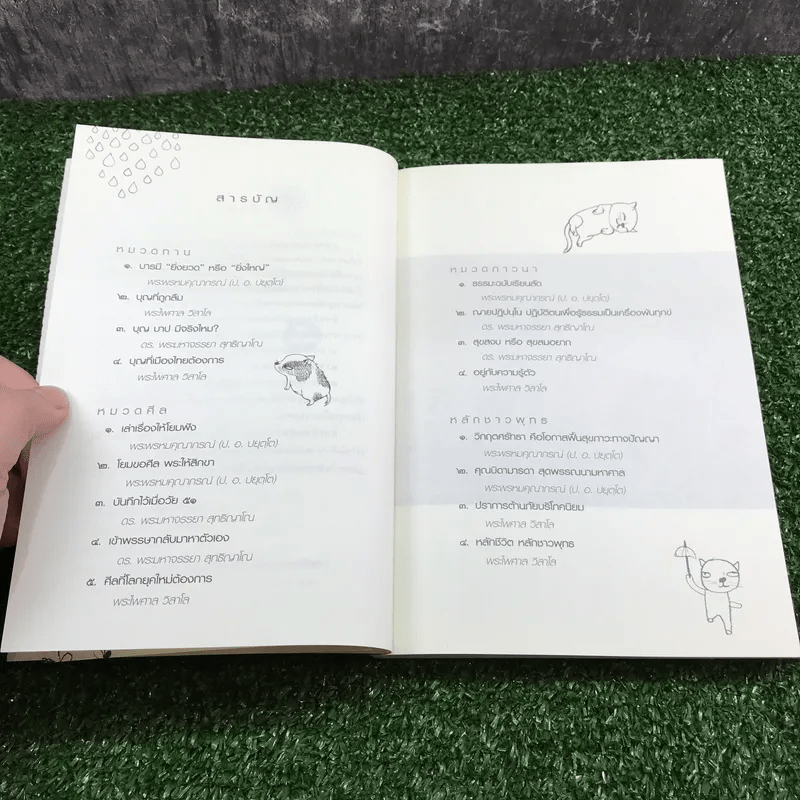 สารบัญ
หมวดทาน
๑. บารมี "ยิ่งยวด" หรือ "ยิ่งใหญ่"
พระพรหมคุณาภรณ์ (ป. อ. ปยุตฺโต)
๒. บุญที่ถูกลืม
พระไพศาล วิสาโล
๓. บุญ บาป มีจริงไหม?
ดร. พระมหาจรรยา สุทฺธิญาโณ
๔. บุญที่เมืองไทยต้องการ
พระไพศาล วิสาโล
หมวดศีล
๑. เล่าเรื่องให้โยมฟัง
พระพรหมคุณาภรณ์ (ป. อ. ปยุตฺโต)
๒. โยมขอศีล พระให้สิกขา
พระพรหมคุณาภรณ์ (ป. อ. ปยุตฺโต)
๓. บันทึกไว้เมื่อวัย ๕๑
ดร. พระมหาจรรยา สุทฺธิญาโณ
๔. เข้าพรรษากลับมาหาตัวเอง
ดร. พระมหาจรรยา สุทฺธิญาโณ
๕. ศีลที่โลกยุคใหม่ต้องการ
พระไพศาล วิสาโล
หมวดภาวนา
๑. ธรรมะฉบับเรียนลัด
พระพรหมคุณาภรณ์ (ป. อ. ปยุตฺโต)
๒. ญายปฏิปนฺโน ปฏิบัติตนเพื่อรู้ธรรมเป็นเครื่องพ้นทุกข์
ดร. พระมหาจรรยา สุทฺธิญาโณ
๓. สุขสงบ หรือ สุขสมอยาก
ดร. พระมหาจรรยา สุทฺธิญาโณ
๔. อยู่กับความรู้ตัว
พระไพศาล วิสาโล
หลักชาวพุทธ
๑. วิกฤตศรัทธา คือโอกาสฟื้นสุขภาวะทางปัญญา
พระพรหมคุณาภรณ์ (ป. อ. ปยุตฺโต)
๒. คุณบิดามารดา สุดพรรณนามหาศาล
พระพรหมคุณาภรณ์ (ป. อ. ปยุตฺโต)
๓. ปราการต้านภัยบริโภคนิยม
พระไพศาล วิสาโล
๔. หลักชีวิต หลักชาวพุทธ
พระไพศาล วิสาโล